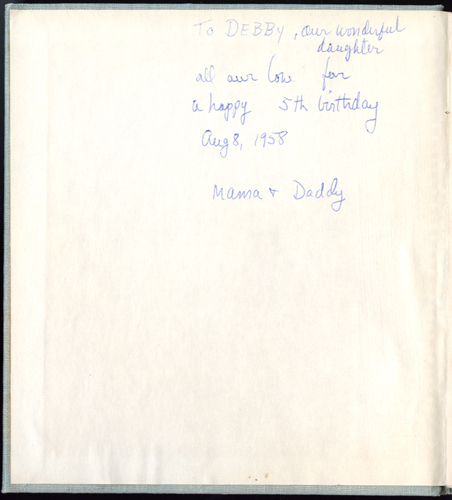 To DEBBY, our wonderful
daughter
all our love for
a happy 5th birthday
Aug 8, 1958
Mama + Daddy